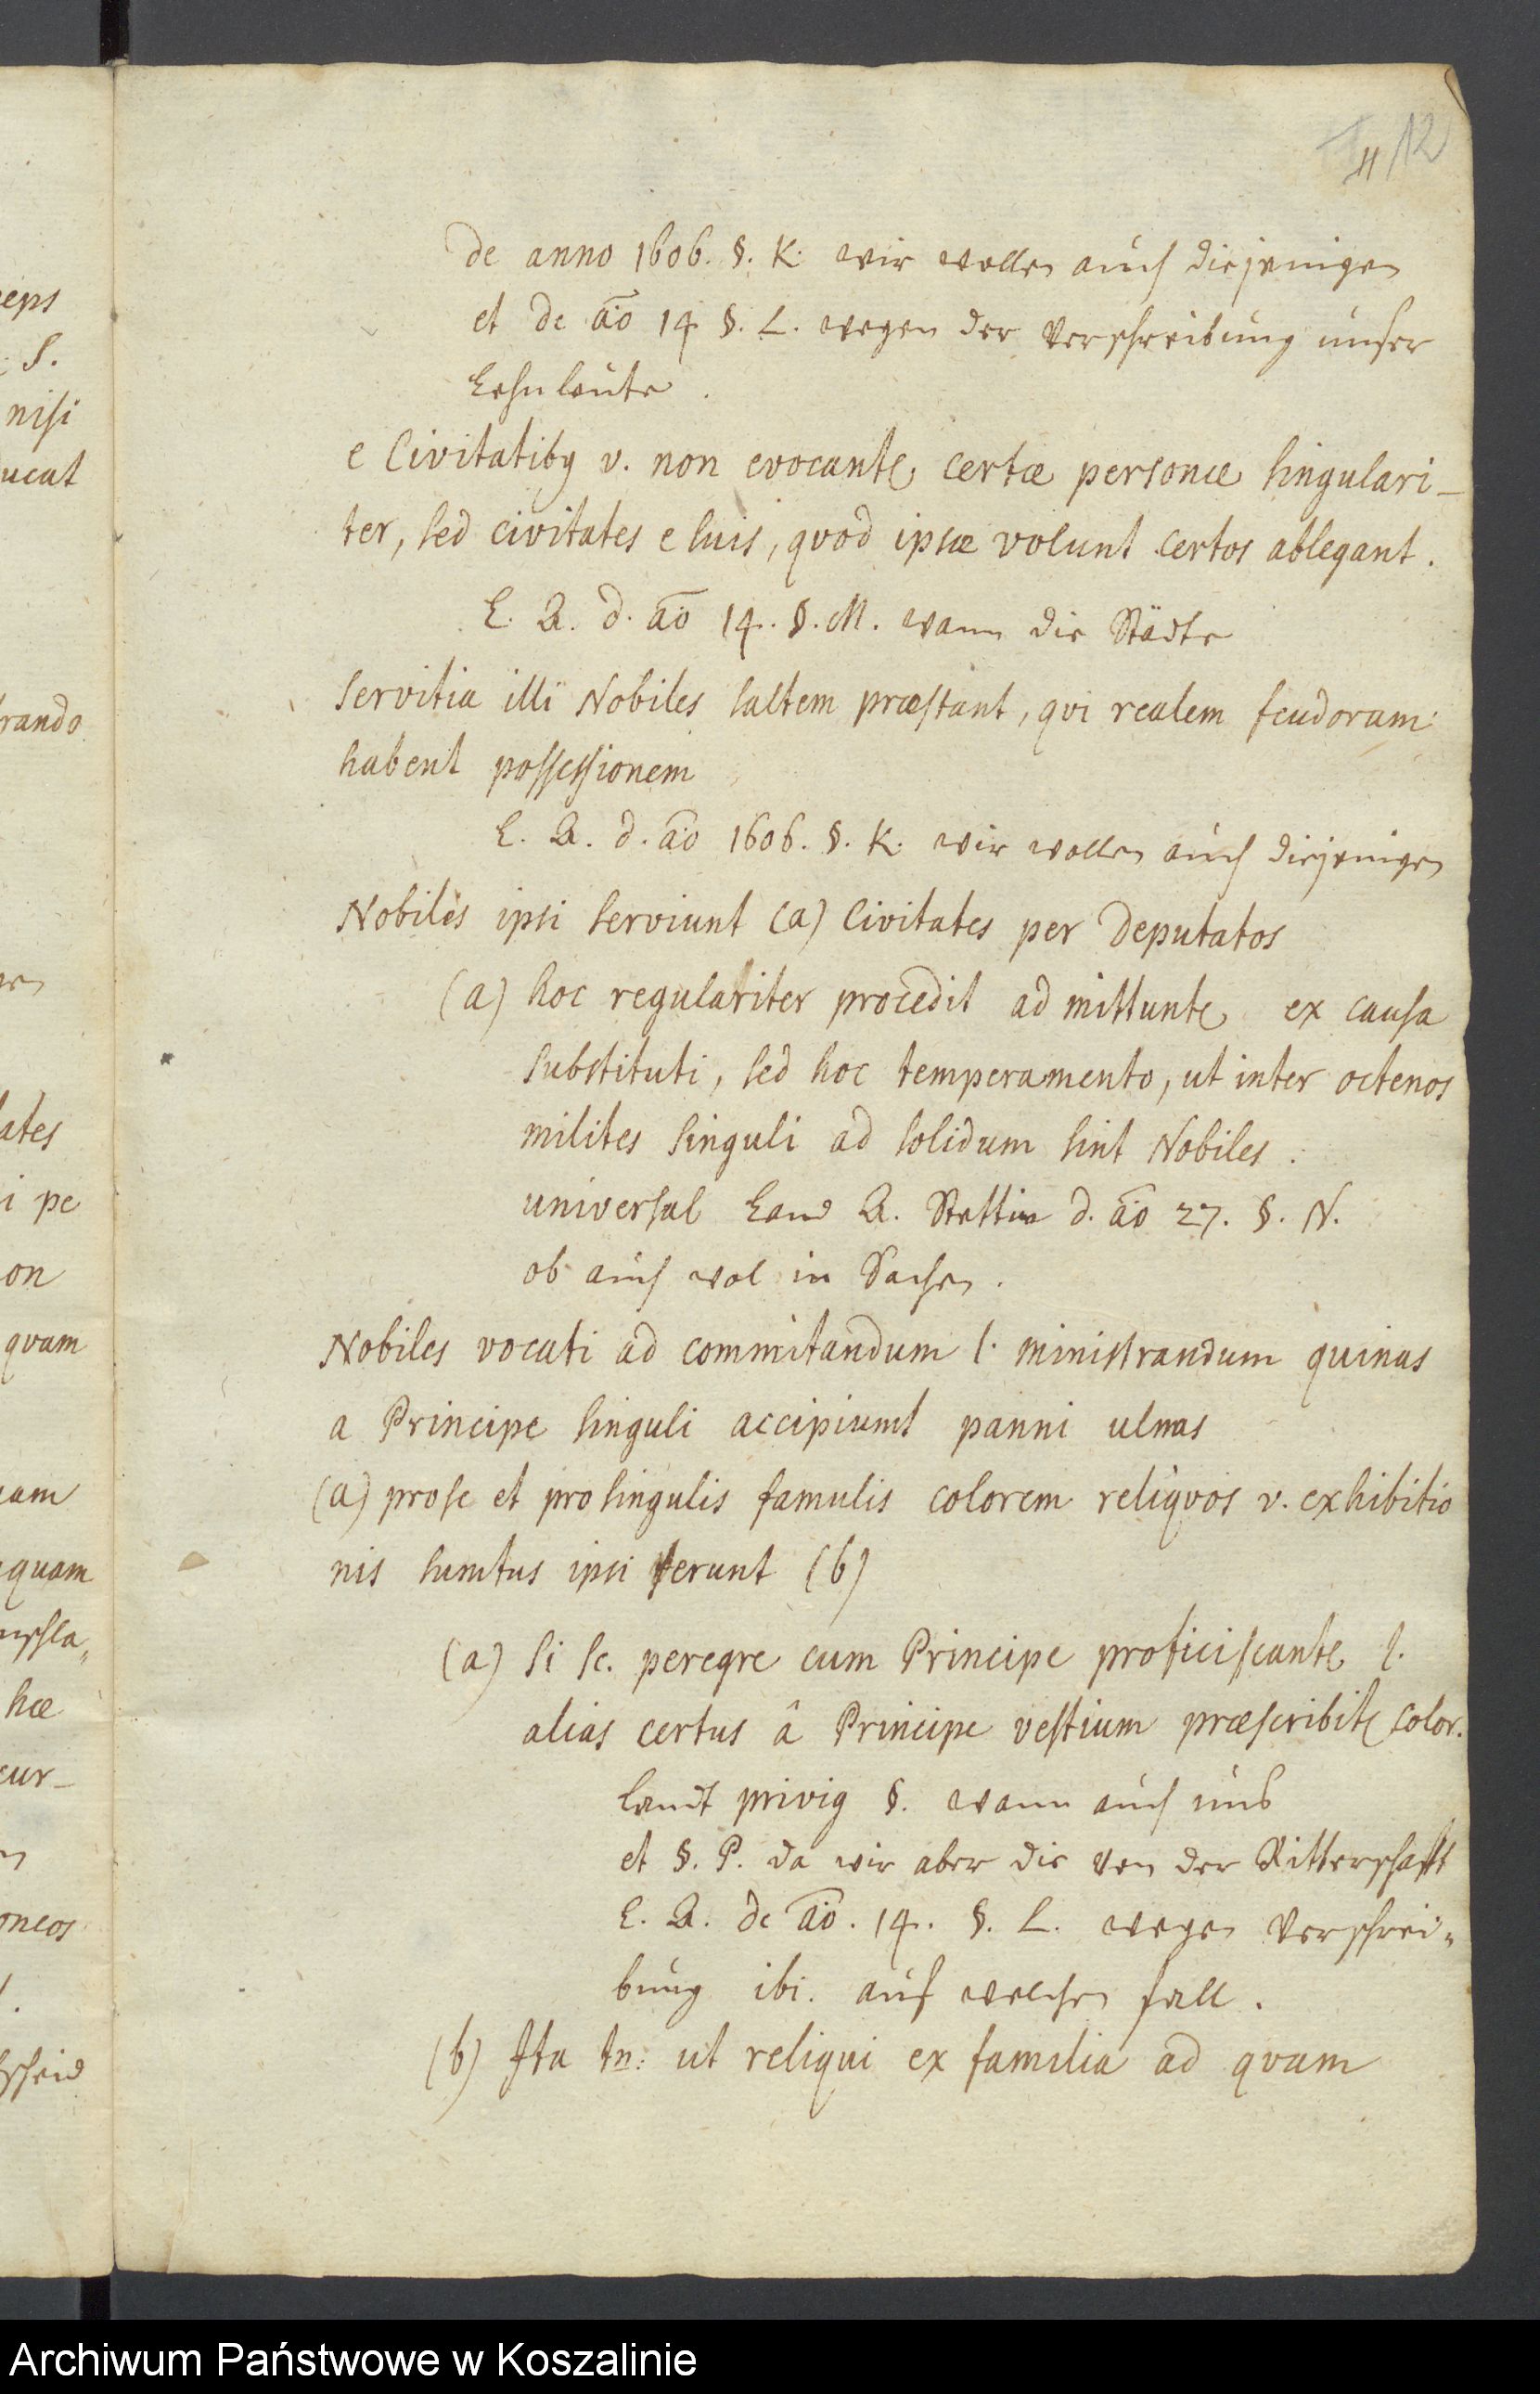 11 12
de anno 1606. §. K. wir wollen auch diejenigen
et de aõ 14 §. L. wegen der Verschreibung unser
Lehnleute.
e Civitatibq v. non evocantr certæ personæ singulari-
ter, sed civitates e suis, quod ipsæ volunt certos ablegant.
L. A. d. aõ 14. §. M. wann die Städte
Servitia illi Nobiles saltem præstant, qvi realem feudoram
habent possessionem
L. A. d. aõ 1606. §. K. wir wollen auch diejenigen
Nobiles ipsi serviunt (a) Civitates per Deputatos
(a) hoc regulariter procedit admittuntr ex causa
substituti, sed hoc temperamento, ut inter octenos
milites singuli ad solidum sint Nobiles.
universal Land A. Stettin d. aõ 27. §. N.
ob auch wol in Sachen.
Nobiles vocati ad commitandum l. ministrandum quinas
a Principe singuli accipiunt panni ulnas
(a) pro se et pro singulis famulis colorem reliqvos v. exhibitio
nis sumtus ipsi ferunt (b)
(a) si sc. peregre cum Principe proficiscantr l.
alias certus â Principe vestium præscribitr color.
Landt privig §. wann auch uns
et §. P. da wir aber die von der Ritterschafft
L. A. de aõ. 14. §. L. wegen Verschrei-
bung ibi. auf welchen fall.
(b) Ita tn: ut reliqui ex familia ad qvam
eps
S.
nisi
ucat
rando
ates
i pe
on
quam
am
quam
hæ
cur-
oneos
Archiwum Państwowe w Koszalinie